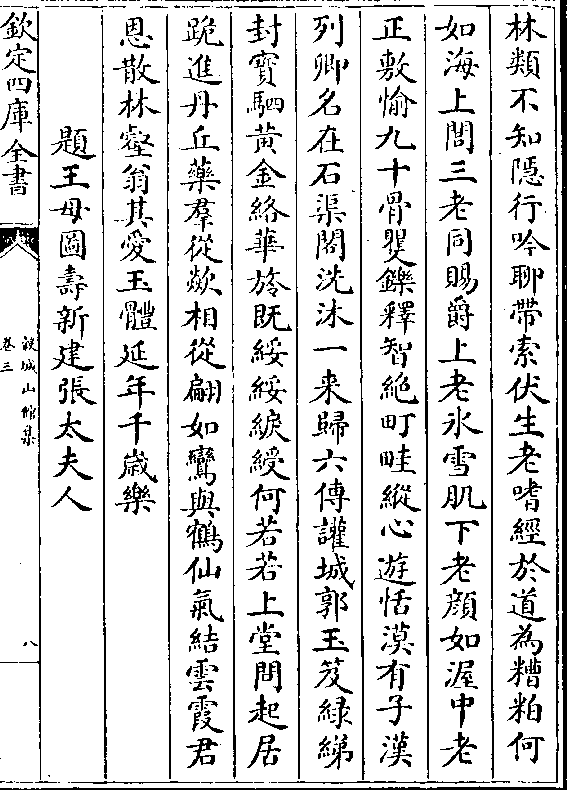 林類不知隱行吟聊帶索伏生老嗜經於道為糟粕何
如海上閭三老同賜爵上老氷雪肌下老顔如渥中老
正敷愉九十骨矍鑠釋智絶町畦縱心遊恬漠有子漢
列卿名在石渠閣洗沐一来歸六傳讙城郭玉笈緑綈
封寳駟黄金絡華旍既綏綏綟綬何若若上堂問起居
跪進丹丘藥羣從歘相從翩如鸞與鶴仙氣結雲霞君
恩散林壑翁其愛玉體延年千嵗樂
題王母圖壽新建張太夫人
欽定四庫全書
穀城山館集
卷三
八